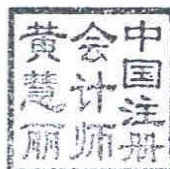 中国注册
会计师
黄慧丽